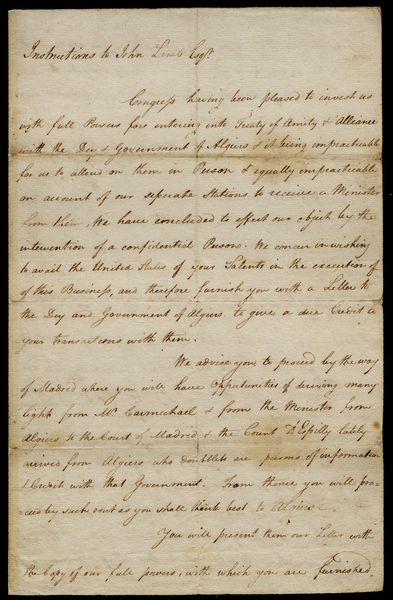 Instructions to John Lamb Esqr.
Congress having been pleased to invest us
with full Powers for entering into Treaty of Amity & Alliance
with the Dey & Government of Algiers & it being impracticable
for us to attend on them in Person & equally impracticable
on account of our seperate Stations to receive a Minister
from them, We have concluded to effect our object by the
intervention of a confidential Person. We concur in wishing
to avail the United States of your Talents in the execution of
of this Business, and therefore furnish you with a Letter to
the Dey and Government of Algiers to give a due Credit to
your transactions with them.
We advise you to proceed by the way
of Madrid where you will have Oppatunities of deriving many
lights from Mr Carmichael & from the Minister from
Algiers to the Court of Madrid & the Count D'Espilly lately
arrived from Algiers who doubtless are persons of information
& Credit with that Government. From thence you will pro-
ceed by such rout as you shall think best to Algiers.
You will present them our Letter with
the Copy of our full powers, with which you are furnished